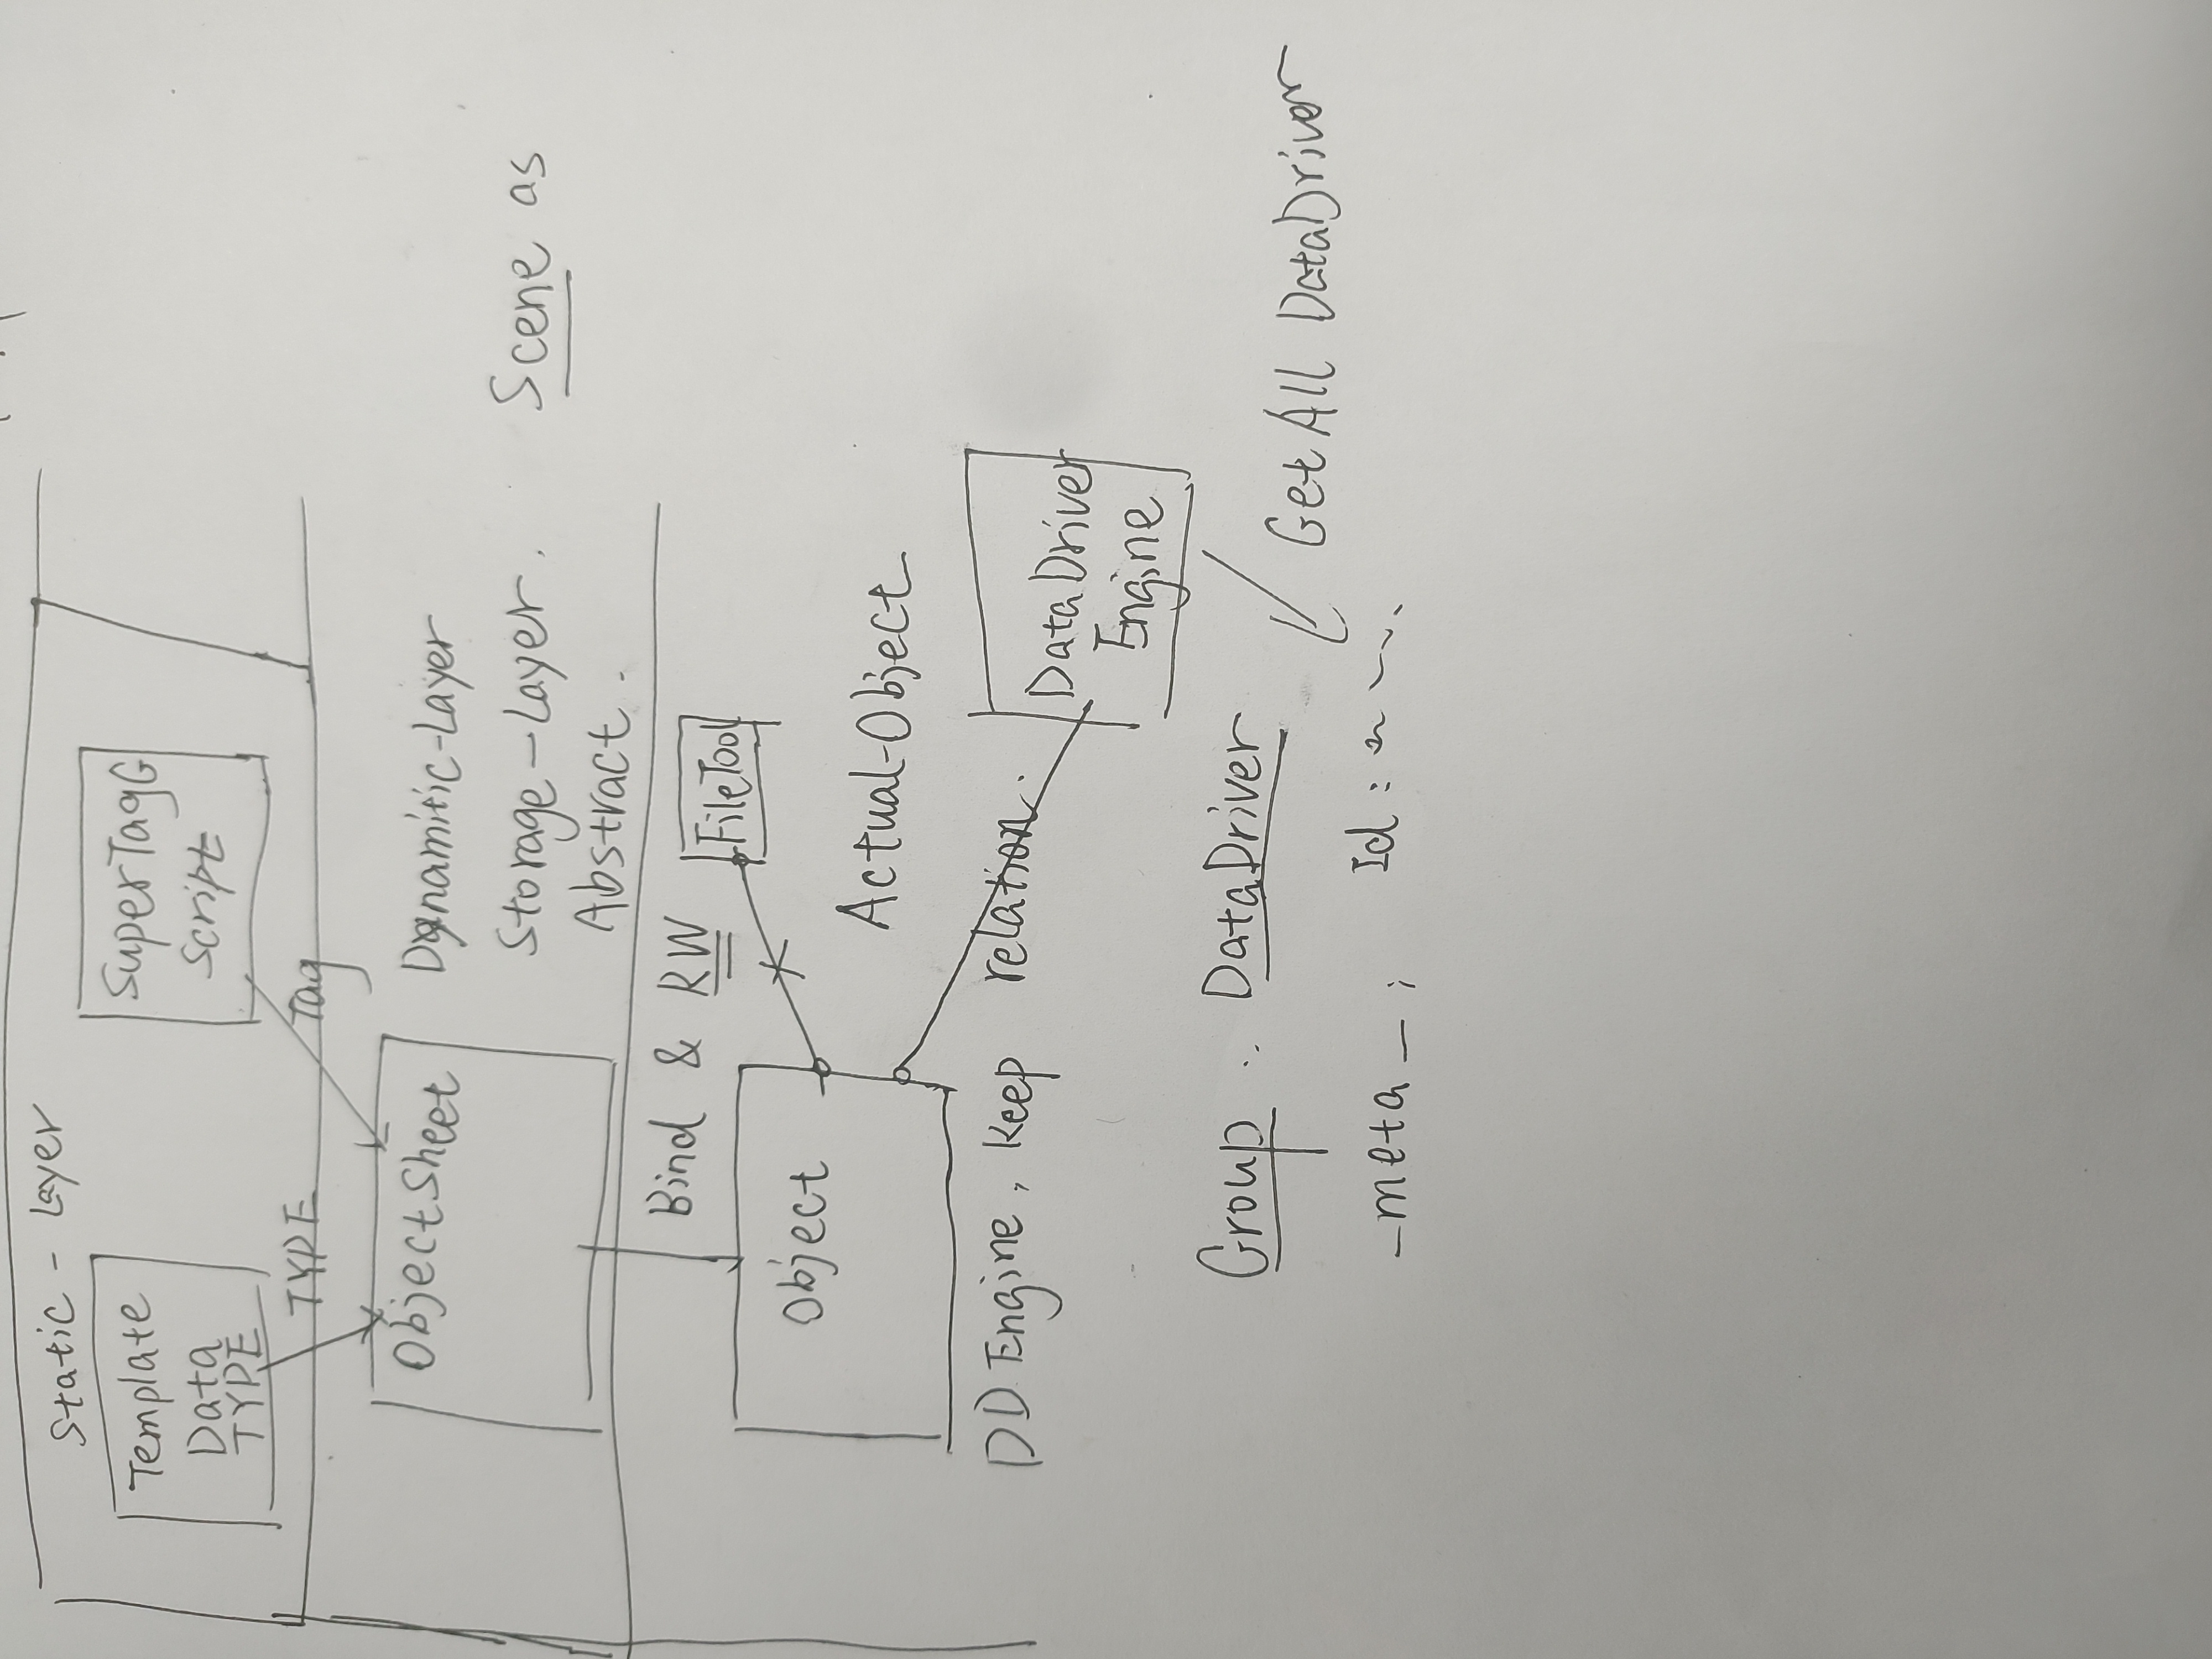 Static - Layer
Template
Data
TYPE
SuperTagG
Script
TYPE
Tag
ObjectSheet
Dynamitic-Layer
Storage-Layer.
Abstract.
Scene as
Bind & RW
FileTool
Object
Actual-Object
DD Engine, Keep relation.
DataDriver
Engine
Group : DataDriver
GetAll DataDriver
_meta_;
Id: